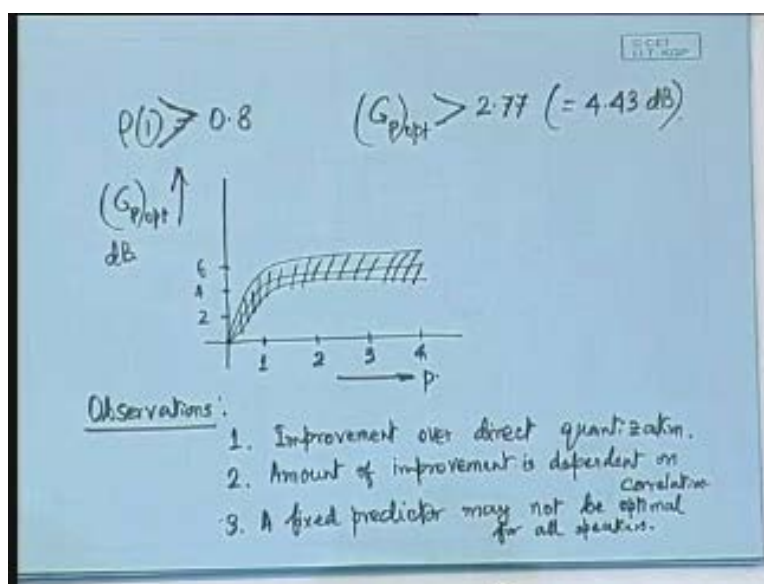 © CET
I.I.T. KGP
ρ(1) ≥ 0.8
(Gp)opt > 2.77 (= 4.43 dB)
(Gp)opt ↑
dB
6
4
2
1 2 3 4
→ p.
Observations:
1. Improvement over direct quantization.
2. Amount of improvement is dependent on
correlation
3. A fixed predictor may not be optimal
for all speakers.